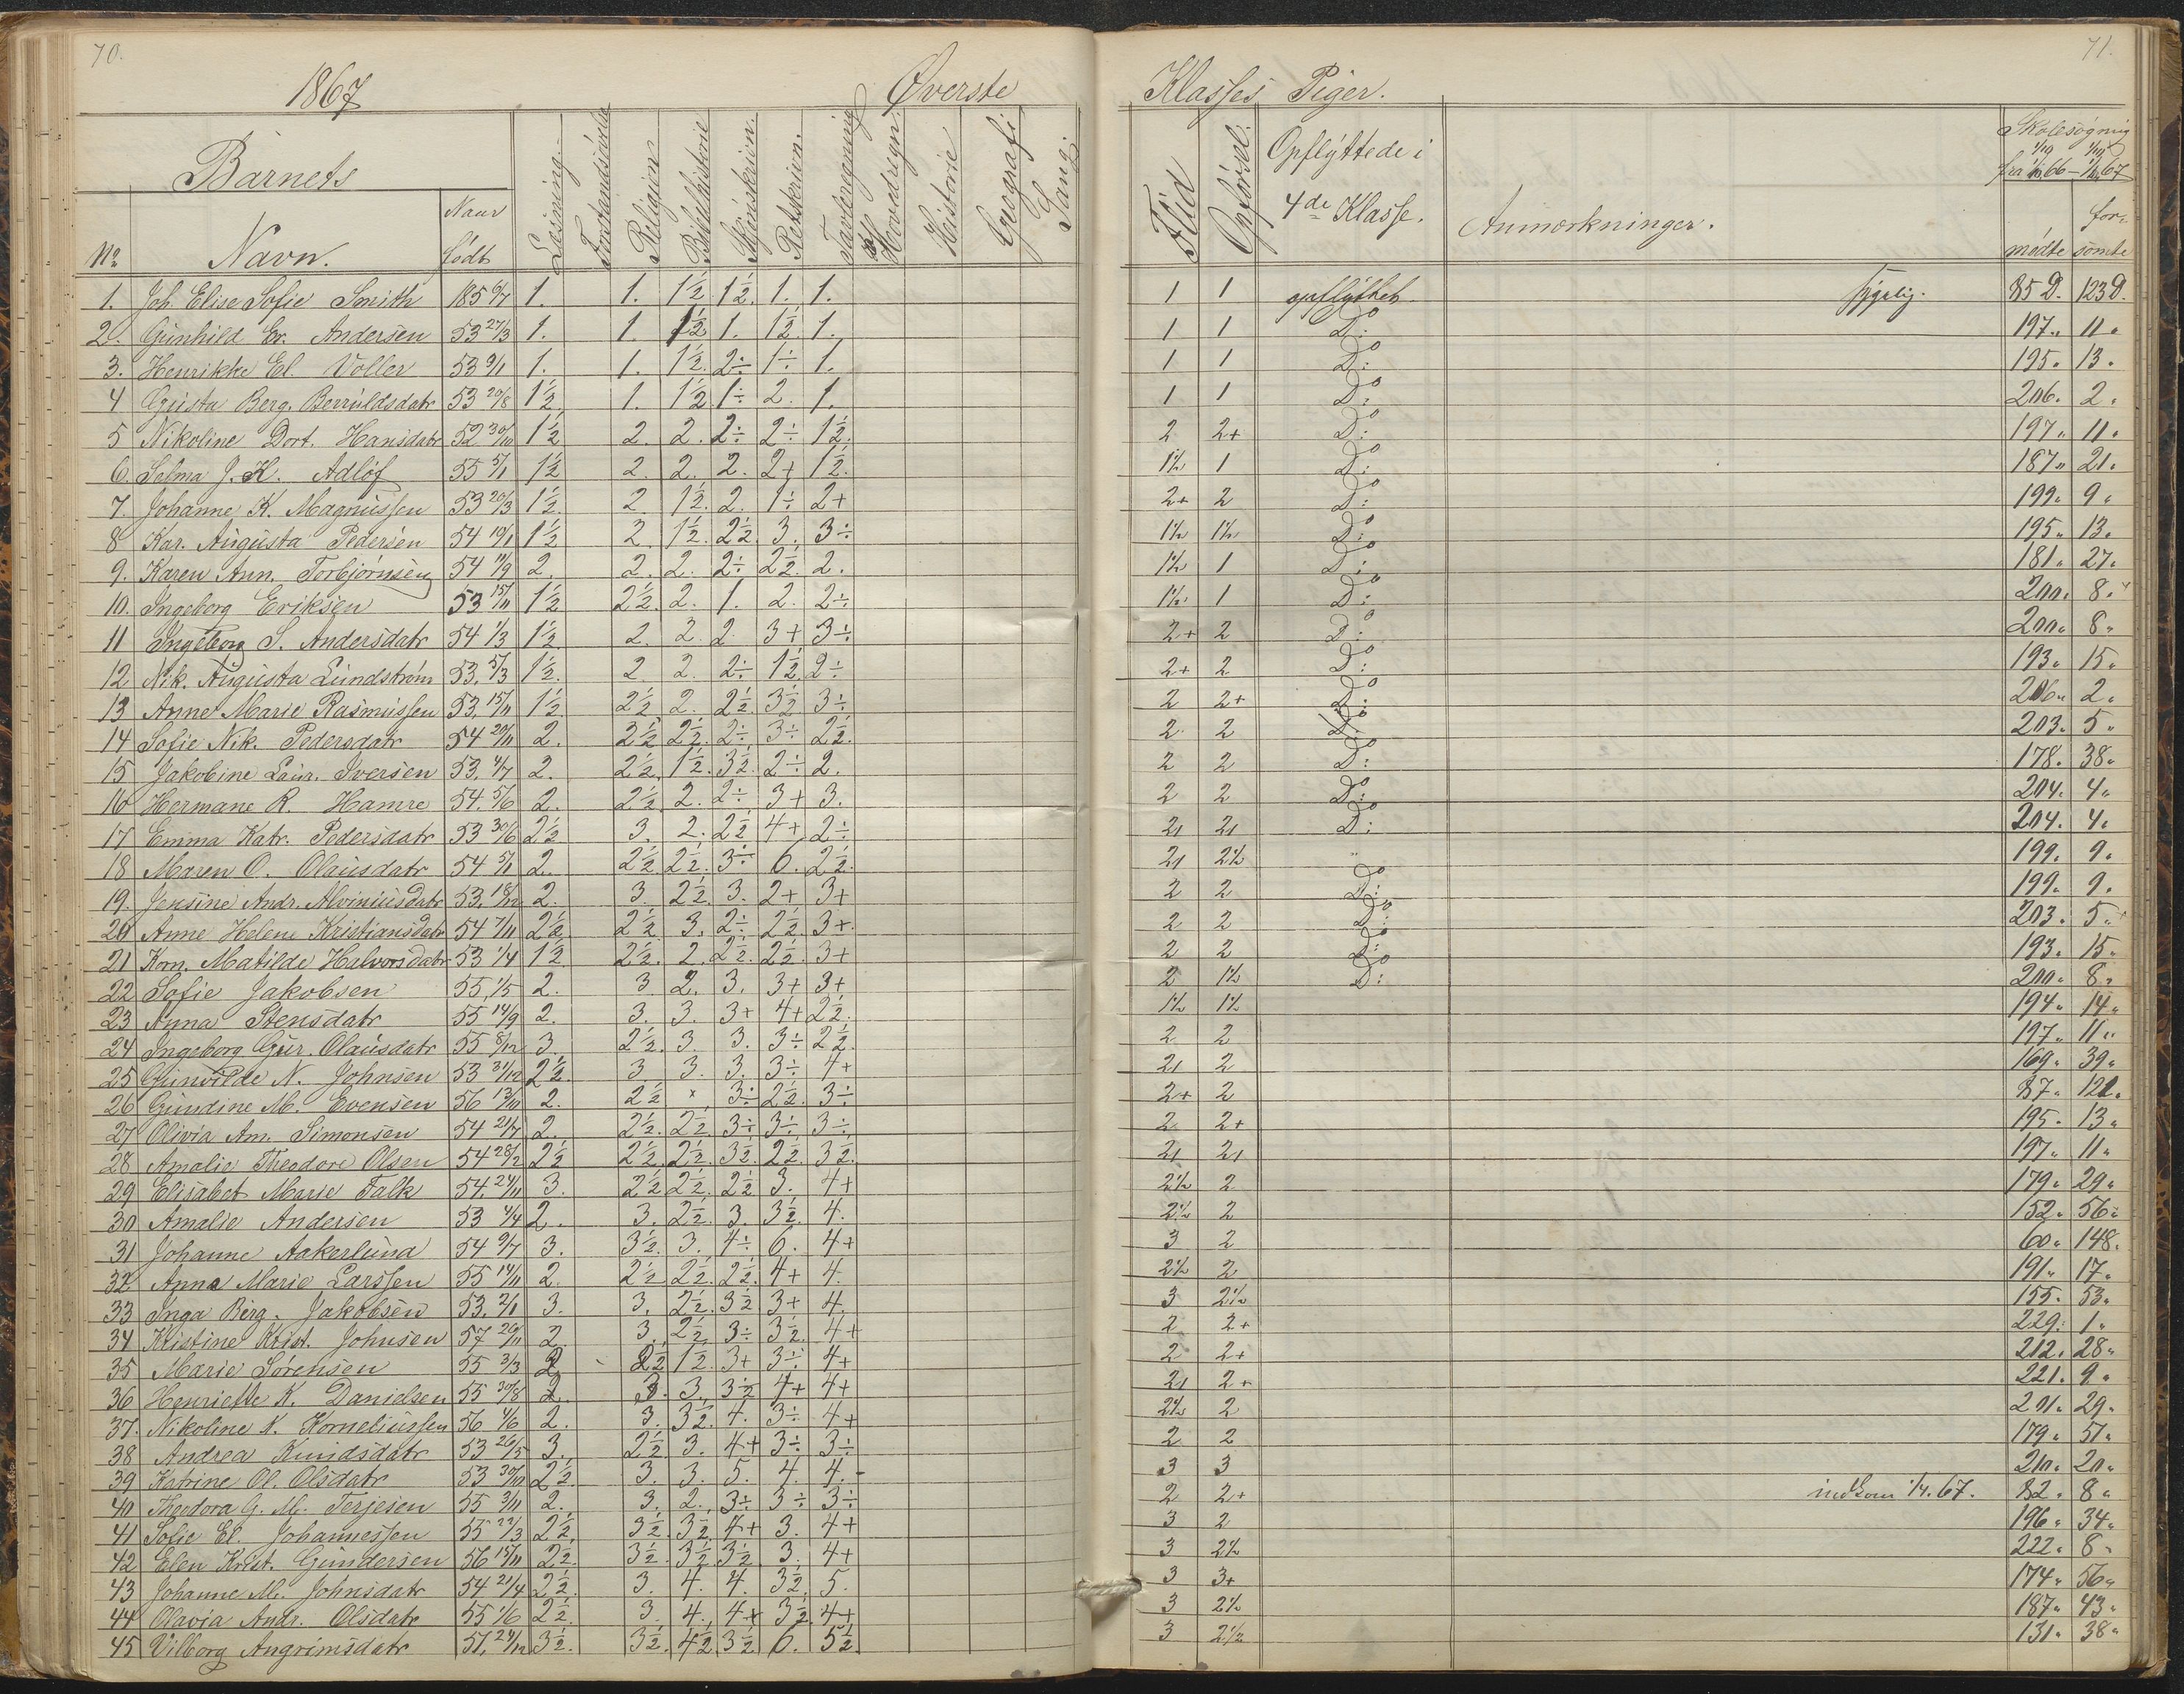 70.
1867
Øverste
Barnets
No Navn. Naar født Læsning. Forstandsøvelse Religion Bibelhistorie Skjønskrivn. Retskrivn. Tavleregning Hovedregn. Historie Geografi Sang.
1. Joh. Elise Sofie Smith 185 6/7 1. 1. 1½ 1½. 1. 1.
2. Gunhild Er. Andersen 53 27/3 1. 1. 1½ 1. 1½. 1.
3. Henrikke El. Voller 53 9/1 1. 1. 1½. 2÷ 1÷ 1.
4 Gusta Berg. Berruldsdatr 53 20/8 1½. 1. 1½. 1÷ 2. 1.
5 Nikoline Dort. Hansdatr 52 30/10 1½ 2. 2. 2÷ 2÷ 1½.
6. Selma J. K. Adløf 55 5/1 1½ 2. 2. 2. 2+ 1½.
7. Johanne K. Magnussen 53 20/3 1½. 2. 1½. 2. 1÷ 2+
8 Kar. Augusta Pedersen 54 10/1 1½ 2. 1½. 2½. 3. 3÷
9. Karen Ann. Torbjørnsen 54 11/9 2. 2. 2. 2÷ 2½. 2.
10. Ingeborg Eriksen 53 15/11 1½ 2½. 2. 1. 2. 2÷
11 Ingeborg S. Andersdatr 54 1/3 1½. 2. 2. 2. 3+ 3÷
12 Nik. Augusta Lundstrøm 53. 5/3 1½. 2. 2. 2÷ 1½. 2÷
13 Anne Marie Rasmussen 53. 15/11 1½. 2½ 2. 2½. 3½. 3÷
14 Sofie Nik. Pedersdatr 54 20/11 2. 3½ 2½. 2÷ 3÷ 2½.
15 Jakobine Laur. Iversen 53. 4/7 2. 2½. 1½. 3½. 2÷ 2.
16 Hermane R. Hamre 54. 5/6 2. 2½. 2. 2÷ 3+ 3.
17 Emma Katr. Pedersdatr 53 30/6 2½ 3. 2. 2½ 4+ 2÷
18 Maren O. Olausdatr 54 5/1 2. 2½ 2½. 3÷ 6. 2½.
19. Jensine Andr. Alviniusdatr 53. 18/12 2. 3. 2½. 3. 2+ 3+
20 Anne Helene Kristiansdatr 54 7/11 2½ 2½ 3. 2÷ 2½. 3+
21 Korn. Matilde Halvorsdatr 53 1/4 1½ 2½. 2. 2½. 2½. 3+
22 Sofie Jakobsen 55. 1/5 2. 3 2. 3. 3+ 3+
23 Anna Stensdatr 55 14/9 2. 3. 3. 3+ 4+ 2½.
24 Ingeborg Gur. Olausdatr 55 8/12 3. 2½. 3. 3. 3÷ 2½.
25 Gunvilde N. Johnsen 53 31/12 2½. 3 3. 3. 3÷ 4+
26 Gundine M. Evensen 56 13/10 2. 2½ × 3÷ 2½. 3÷
27 Olivia Am. Simonsen 54 21/7 2. 2½. 2½. 3÷ 3÷ 3÷
28 Amalie Theodore Olsen 54 28/2 2½ 2½ 2½. 3½. 2½. 3½.
29 Elisabet Marie Falk 54. 24/11 3. 2½ 2½. 2½ 3. 4+
30 Amalie Andersen 53 4/4 2. 3. 2½. 3. 3½. 4.
31 Johanne Aakerlund 54 9/7 3. 3½. 3. 4÷ 6. 4+
32 Anna Marie Larssen 55 14/11 2. 2½ 2½. 2½. 4+ 4.
33 Inga Berg. Jakobsen 53. 2/1 3. 3. 2½. 3½ 3+ 4.
34 Kristine Krist. Johnsen 57 26/11 2. 3. 2½. 3÷ 3½. 4+
35 Marie Sørensen 55 3/3 2 2½ 1½. 3+ 3÷ 4+
36 Henriette K. Danielsen 55 30/8 2. 3. 3. 3½ 4+ 4+
37. Nikoline K. Korneliussen 56 4/6 2. 3. 3½. 4. 3÷ 4+
38 Andrea Knudsdatr 53 26/5 3. 2½ 3. 4+ 3÷ 3÷
39 Katrine Ol. Olsdatr 53 30/10 2½. 3. 3. 5. 4. 4.
40 Theodora G. M. Terjesen 55 3/11 2. 3. 2. 3÷ 3÷ 3÷
41 Sofie El. Johannessen 55 22/3 2½. 3½. 3½. 4+ 3. 4+
42 Elen Krist. Gundersen 56 15/11 2½. 3½. 3½. 3½. 3. 4+
43 Johanne M. Johnsdatr 54 21/4 2½. 3. 4. 4. 3½. 5.
44 Olavia Andr. Olsdatr 55 1/6 2½. 3. 4. 4+ 3½. 4+
45 Vilborg Angrimsdatr 51. 24/12 3½. 3½. 4½. 3½ 6. 5½.
71.
Klasses Piger.
Flid Opførsel. Opflyttede i 4de Klasse. Anmærkninger. Skolesøgnig fra 1/10 66 – 1/10 67 mødte forsømte
1 1 opflyttet. sygelig. 85 D. 123 D.
1 1 Do: 197„ 11„
1 1 Do: 195„ 13„
1 1 Do: 206„ 2„
2 2+ Do: 197„ 11„
1½ 1 Do: 187„ 21„
2+ 2 Do: 199„ 9„
1½ 1½ Do: 195„ 13„
1½ 1 Do: 181„ 27„
1½ 1 Do: 200„ 8„
2+ 2 Do: 200„ 8„
2+ 2 Do: 193„ 15„
2 2+ Do: 206„ 2„
2 2 Do: 203„ 5„
2 2 Do: 178„ 38„
2 2 Do: 204„ 4„
21 21 Do: 204„ 4„
21 2½ „ 199„ 9„
2 2 Do: 199„ 9„
2 2 Do: 203„ 5„
2 2 Do: 193„ 15„
2 1½ Do: 200„ 8„
1½ 1½ 194„ 14„
2 2 197„ 11„
21 2 169„ 39„
2+ 2 87„ 121„
2 2+ 195„ 13„
21 21 197„ 11„
2½ 2 179„ 29„
2½ 2 152„ 56„
3 2 60„ 148„
2½ 2 191„ 17„
3 2½ 155„ 53„
2 2+ 229„ 1„
2 2+ 212„ 28„
21 2+ 221„ 9„
2½ 2 201„ 29„
2 2 179„ 51„
3 3 210„ 20„
2 2+ indkom 1/4. 67. 82„ 8„
3 2 196„ 34„
3 2½ 222„ 8„
3 3+ 174„ 56„
3 2½ 187„ 43„
3 2½ 131„ 38„